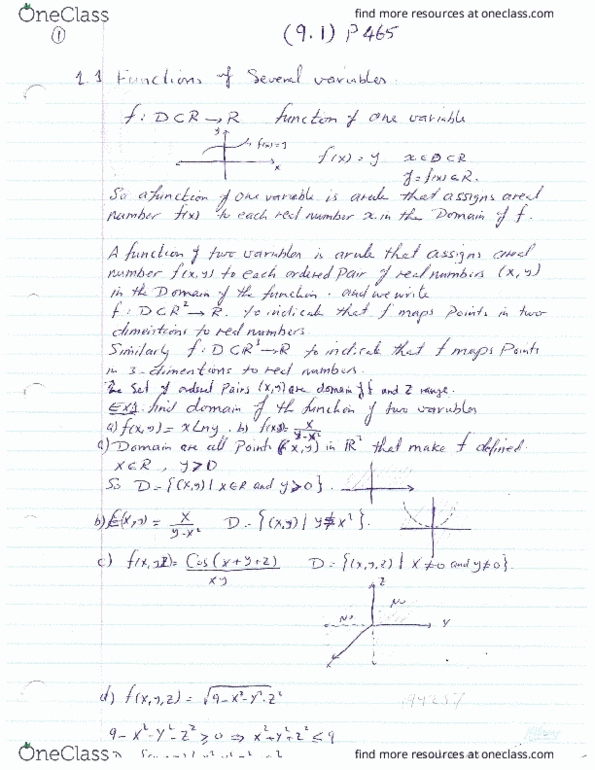 OneClass
find more resources at oneclass.com
1
(9.1) P465
1.1 Functions of Several variables.
f : D⊂R → R function of one variable
y
f(x)=y
x
f(x) = y x∈D⊂R
y=f(x)∈R.
So a function of one variable is a rule that assigns a real
number f(x) to each real number x in the Domain of f.
A function of two variables is a rule that assigns a real
number f(x,y) to each ordered Pair of real numbers (x,y)
in the Domain of the function. and we write
f : D⊂R² → R. to indicate that f maps Points in two
dimentions to real numbers.
Similarly f : D⊂R³ → R to indicate that f maps Points
in 3-dimentions to real numbers.
The Set of ordered Pairs (x,y) are domain of f and Z range.
EX1. find domain of the function of two variables
a) f(x,y) = x Ln y . b) f(x,y) = x/(y-x²)
a) Domain are all Points (x,y) in R² that make f defined.
x∈R , y>0
So D = {(x,y) | x∈R and y>0}.
b) f(x,y) = x/(y-x²) D = {(x,y) | y≠x²}.
c) f(x,y,z) = Cos(x+y+z)/xy D = {(x,y,z) | x≠0 and y≠0}.
Z
No
No
Y
d) f(x,y,z) = √(9-x²-y²-z²)
9-x²-y²-z² ≥ 0 ⇒ x²+y²+z² ≤ 9
OneClass
find more resources at oneclass.com